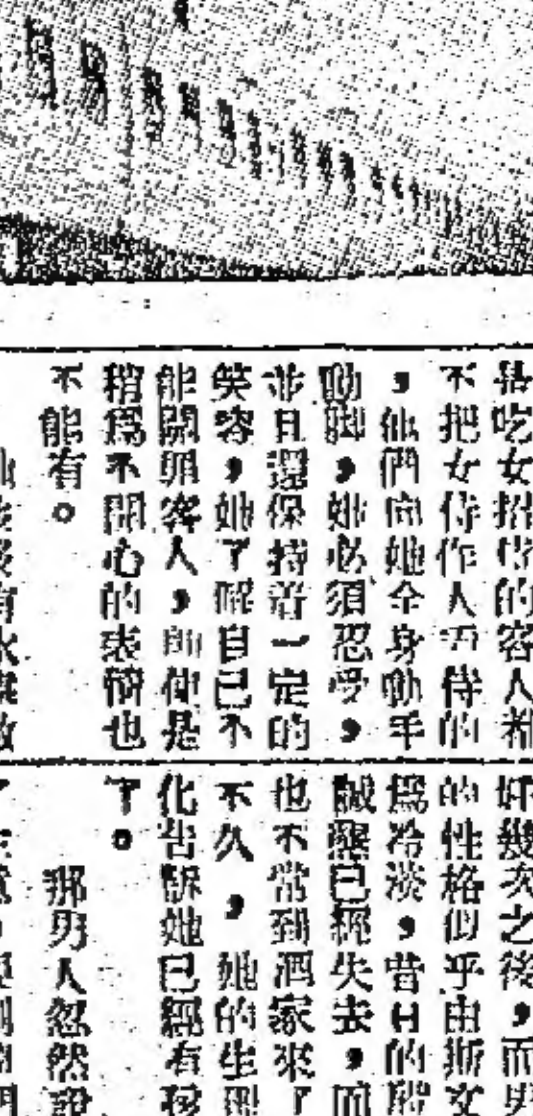 是吃女招待的客人都
不把女侍作人看待的
，他們向她全身動手
動脚，她必須忍受，
並且還保持着一定的
笑容，她了解自己不
能開罪客人，即使是
稍爲不開心的表情也
不能有。
好幾次之後，而
的性格似乎由斯文
爲冷淡，昔日的
誠懇已經失去，而
也不常到酒家來了
不久，她的生理
化告訴她已經有孩
了。
那男人忽然說